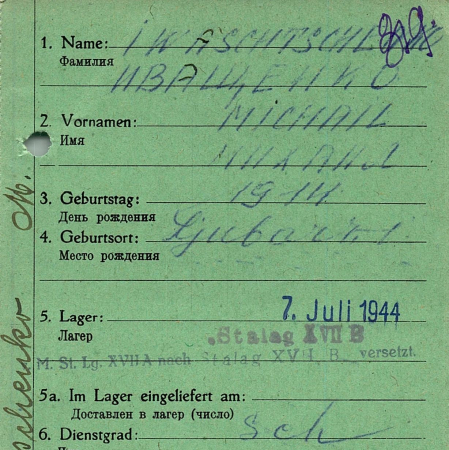 1. Name: IWASCHTSCHENKO
Фамилия
ИВАЩЕНКО
2. Vornamen: MICHAIL
Имя
МИХАИЛ
3. Geburtstag: 1914
День рождения
4. Geburtsort: Ljubarzi
Место рождения
7. Juli 1944
5. Lager: Stalag XVII B
Лагер
M. St. Lg. XVII A nach Stalag XVII B. versetzt.
5a. Im Lager eingeliefert am:
Доставлен в лагер (число)
6. Dienstgrad: sch
schenko M.